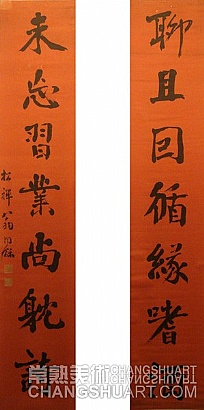 聊且回循緣嗜
未忘習業尚躭
松禪翁同龢
常熟美术 CHANGSHUART
CHANGSHUART.COM